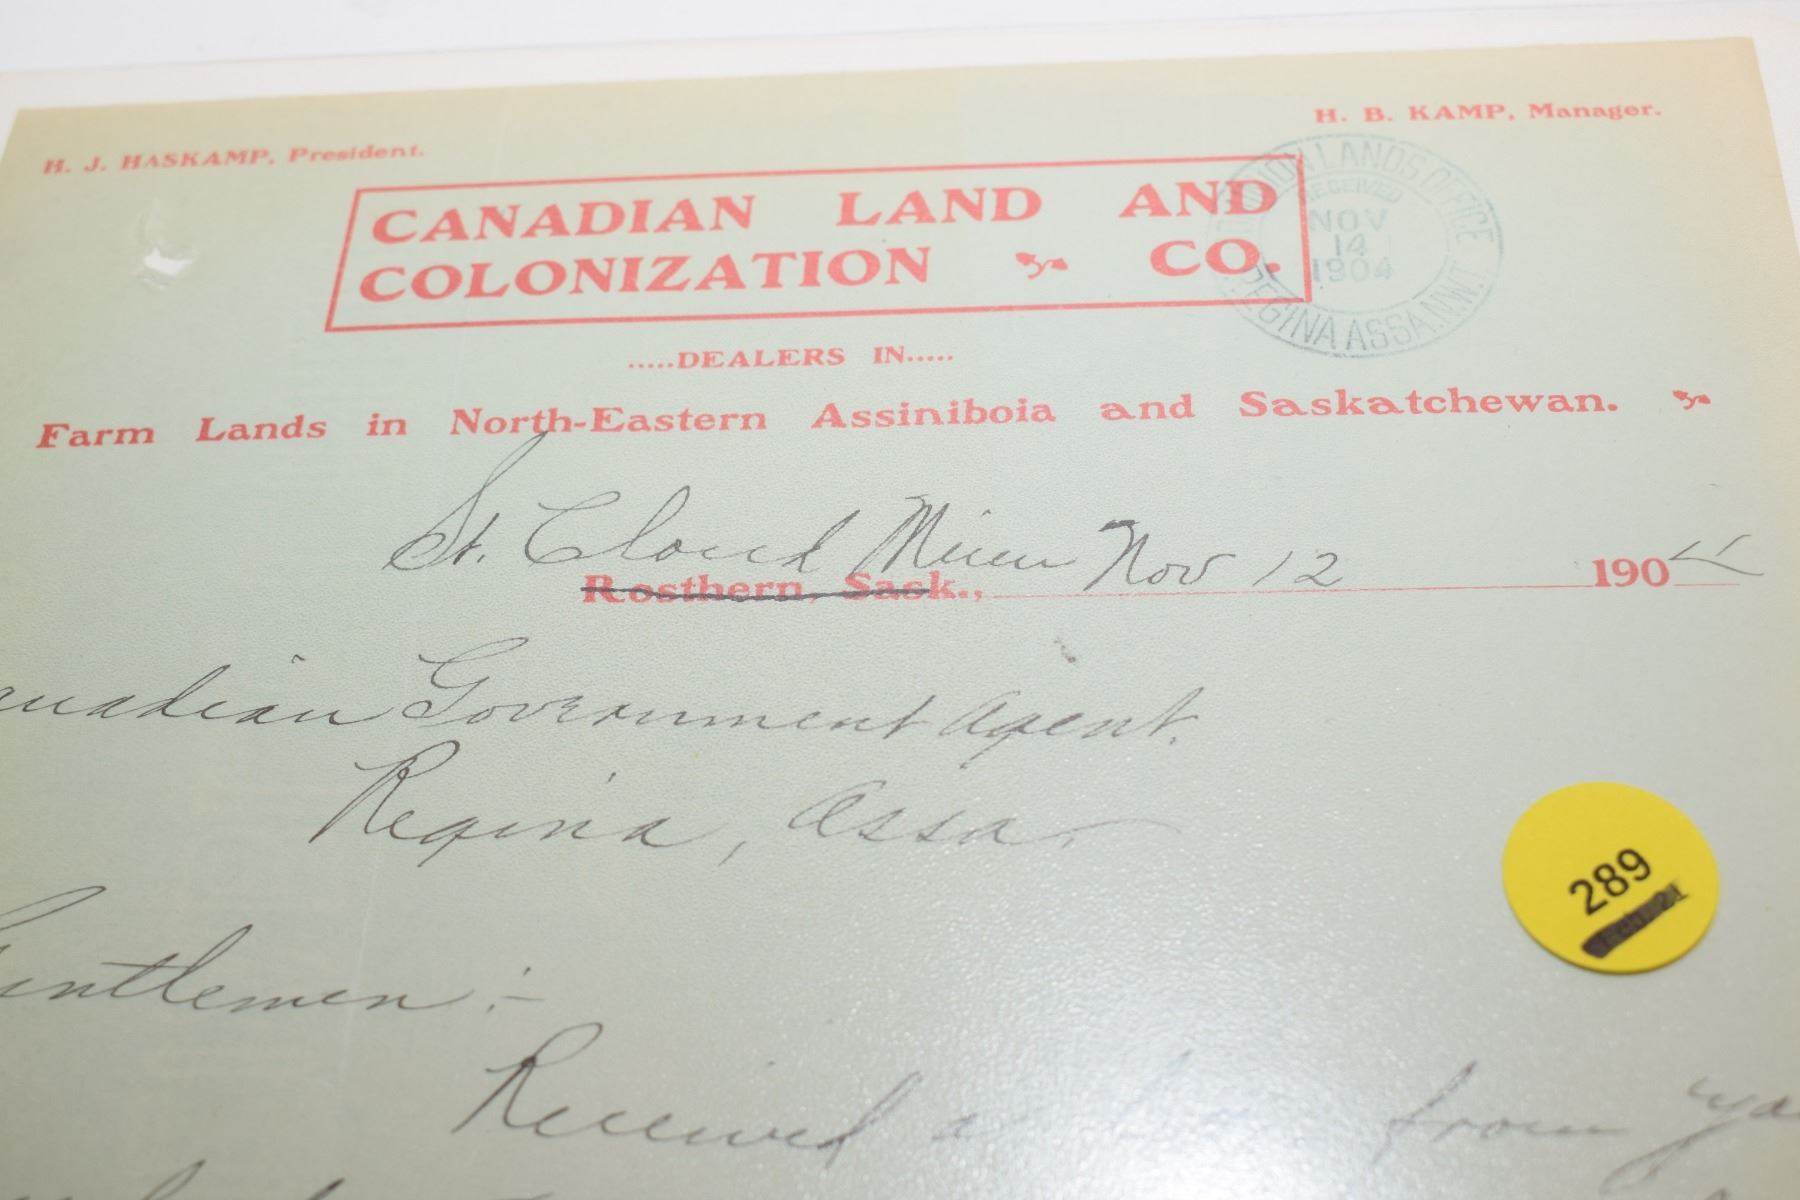 H. J. HASKAMP, President.
H. B. KAMP, Manager.
CANADIAN LAND AND
COLONIZATION CO.
DOMINION LANDS OFFICE
RECEIVED
NOV
14
1904
REGINA ASSA. N.W.T
.....DEALERS IN.....
Farm Lands in North-Eastern Assiniboia and Saskatchewan.
St. Cloud Minn Nov 12 1904
Rosthern, Sask.,
anadian Government Agent.
Regina, Assa.
Gentlemen :-
Received a from
289